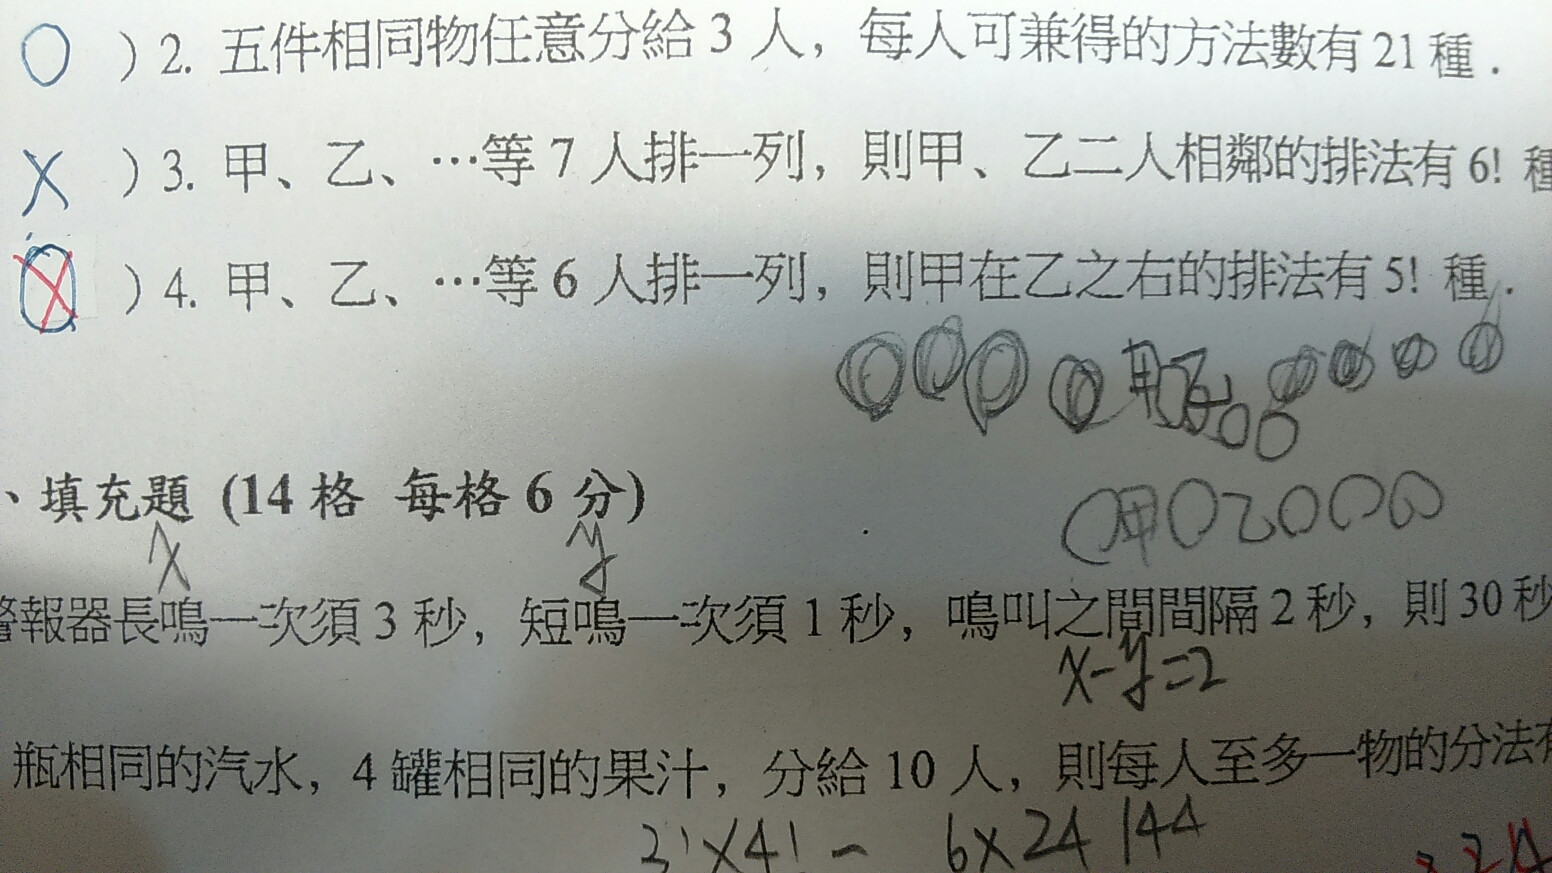 ○ ) 2. 五件相同物任意分給 3 人，每人可兼得的方法數有 21 種．
X ) 3. 甲、乙、…等 7 人排一列，則甲、乙二人相鄰的排法有 6! 種
) 4. 甲、乙、…等 6 人排一列，則甲在乙之右的排法有 5! 種．
甲○乙○○○
、填充題 (14 格 每格 6 分)
x y
警報器長鳴一次須 3 秒，短鳴一次須 1 秒，鳴叫之間間隔 2 秒，則 30 秒
x-y=2
瓶相同的汽水，4 罐相同的果汁，分給 10 人，則每人至多一物的分法有
3!×4! = 6×24 144